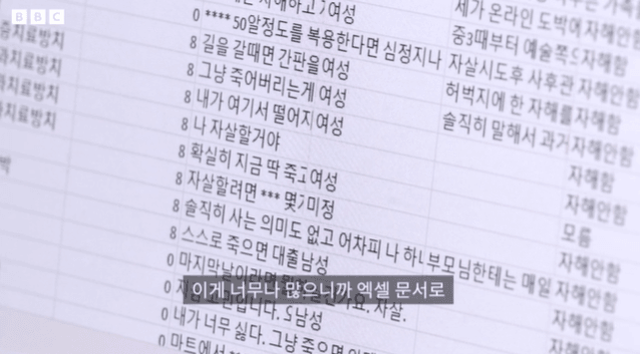 BBC
자해하고 여성 세가 온라인 도박에 자해안함
0 ****50알정도를 복용한다면 심정지나 중3때부터 예술쪽 자해함
8 길을 갈때면 간판을 여성 자살시도후 사후관 자해안함
치료방치 8 그냥 죽어버리는게 여성 허벅지에 한 자해를 자해함
치료방치 8 내가 여기서 떨어지 여성 솔직히 말해서 과거 자해안함
8 나 자살할거야 자해함
8 확실히 지금 딱 죽고 여성 자해안함
8 자살할려면 *** 몇 미정 모름
8 솔직히 사는 의미도 없고 어차피 나 하나 부모님한테는 매일 자해안함
8 스스로 죽으면 대출 남성 자해안함
0 마지막날이라면 자살.
0 남성
0 내가 너무 싫다. 그냥 죽으면
0 마트에서
이게 너무나 많으니까 엑셀 문서로